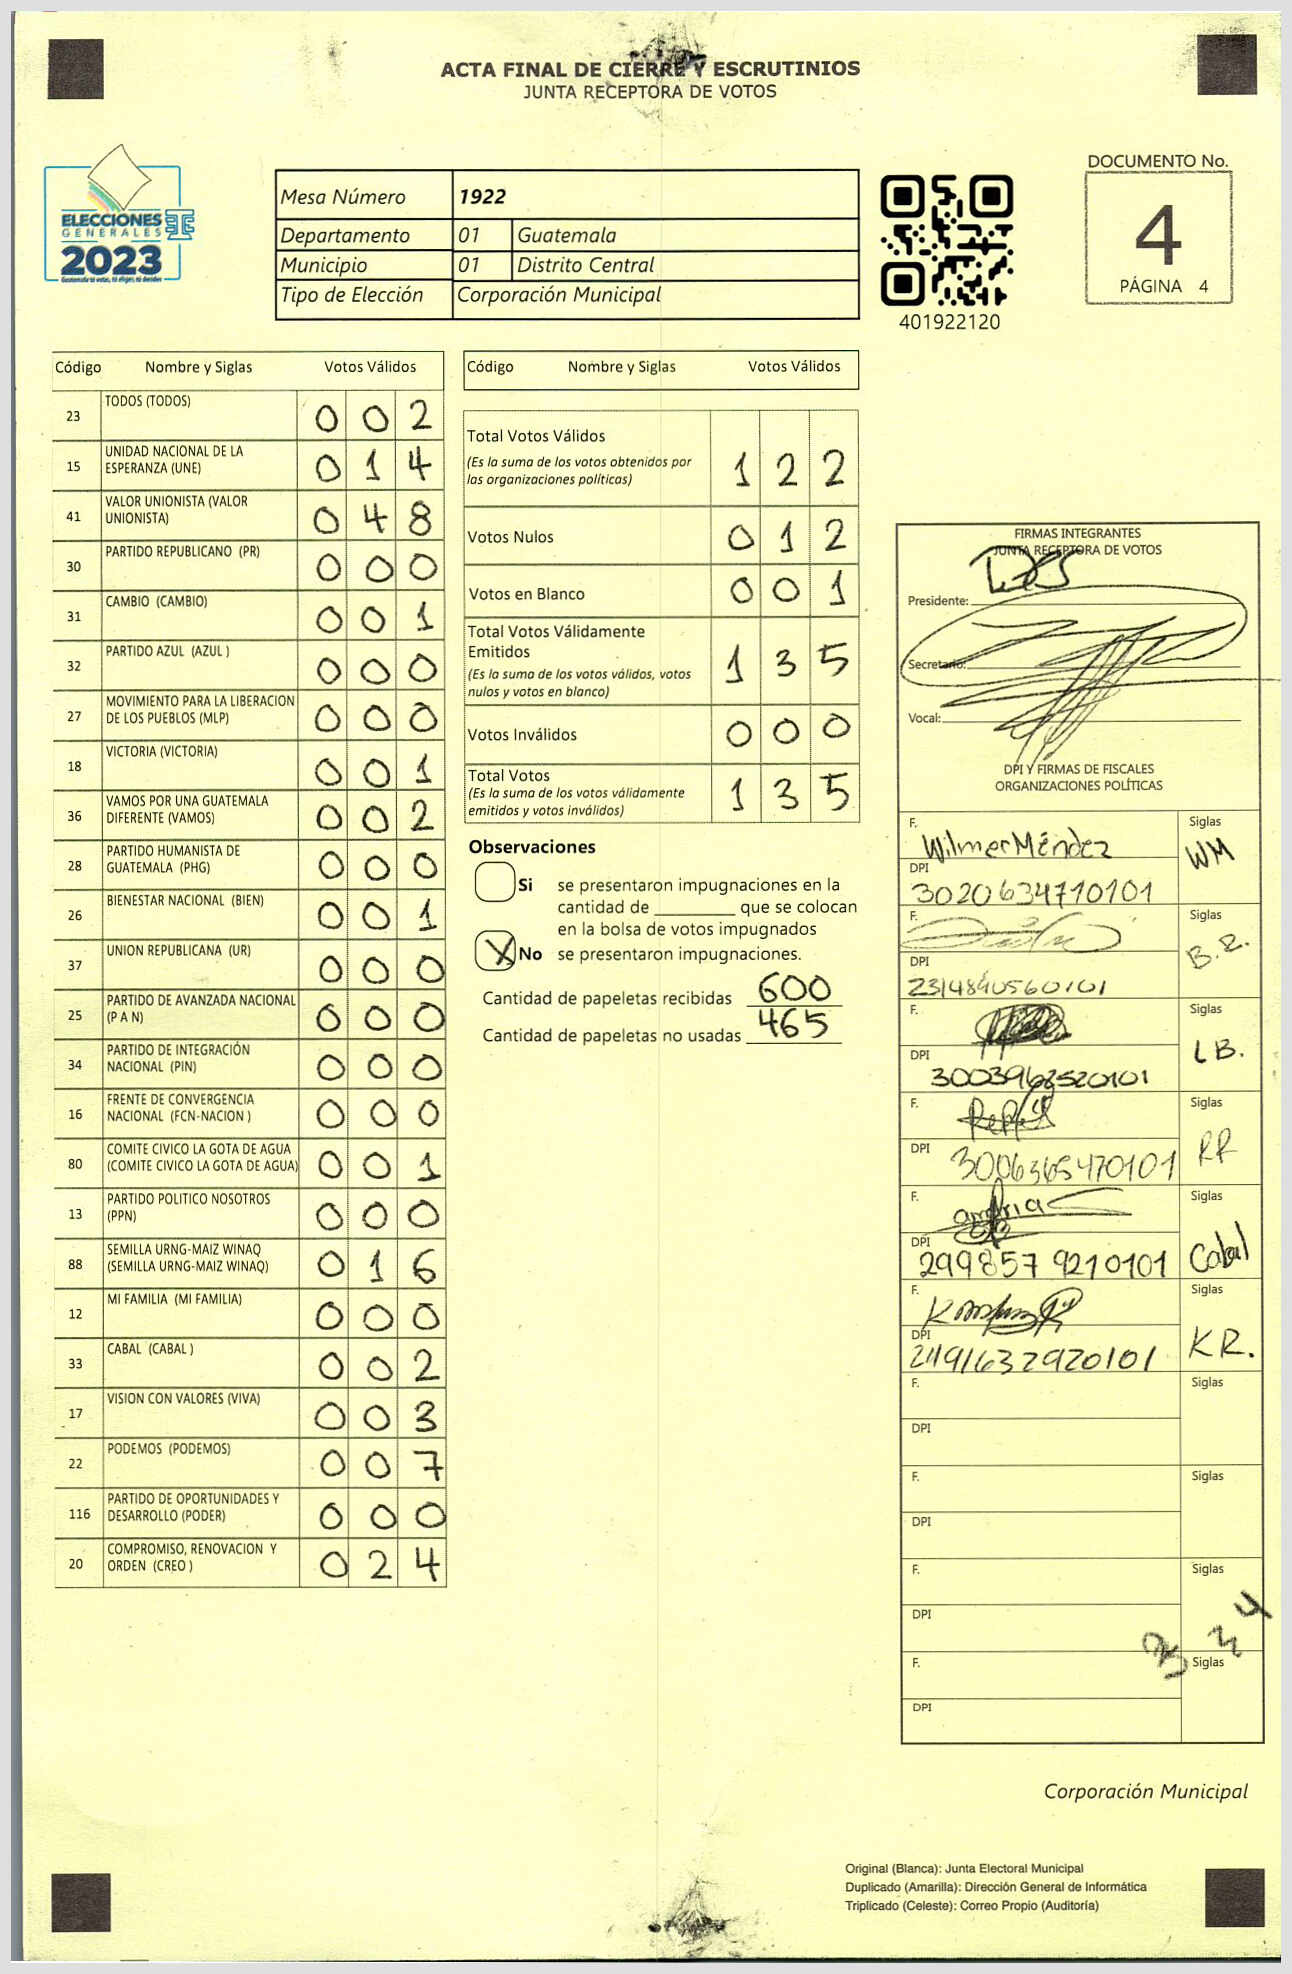 ACTA FINAL DE CIERRE Y ESCRUTINIOS
JUNTA RECEPTORA DE VOTOS
ELECCIONES
GENERALES
2023
Guatemala tú votas, tú eliges, tú decides
Mesa Número 1922
Departamento 01 Guatemala
Municipio 01 Distrito Central
Tipo de Elección Corporación Municipal
401922120
DOCUMENTO No.
4
PÁGINA 4
Código Nombre y Siglas Votos Válidos
23 TODOS (TODOS) 0 0 2
15 UNIDAD NACIONAL DE LA ESPERANZA (UNE) 0 1 4
41 VALOR UNIONISTA (VALOR UNIONISTA) 0 4 8
30 PARTIDO REPUBLICANO (PR) 0 0 0
31 CAMBIO (CAMBIO) 0 0 1
32 PARTIDO AZUL (AZUL ) 0 0 0
27 MOVIMIENTO PARA LA LIBERACION DE LOS PUEBLOS (MLP) 0 0 0
18 VICTORIA (VICTORIA) 0 0 1
36 VAMOS POR UNA GUATEMALA DIFERENTE (VAMOS) 0 0 2
28 PARTIDO HUMANISTA DE GUATEMALA (PHG) 0 0 0
26 BIENESTAR NACIONAL (BIEN) 0 0 1
37 UNION REPUBLICANA (UR) 0 0 0
25 PARTIDO DE AVANZADA NACIONAL (P A N) 0 0 0
34 PARTIDO DE INTEGRACIÓN NACIONAL (PIN) 0 0 0
16 FRENTE DE CONVERGENCIA NACIONAL (FCN-NACION ) 0 0 0
80 COMITE CIVICO LA GOTA DE AGUA (COMITE CIVICO LA GOTA DE AGUA) 0 0 1
13 PARTIDO POLITICO NOSOTROS (PPN) 0 0 0
88 SEMILLA URNG-MAIZ WINAQ (SEMILLA URNG-MAIZ WINAQ) 0 1 6
12 MI FAMILIA (MI FAMILIA) 0 0 0
33 CABAL (CABAL ) 0 0 2
17 VISION CON VALORES (VIVA) 0 0 3
22 PODEMOS (PODEMOS) 0 0 7
116 PARTIDO DE OPORTUNIDADES Y DESARROLLO (PODER) 0 0 0
20 COMPROMISO, RENOVACION Y ORDEN (CREO ) 0 2 4
Código Nombre y Siglas Votos Válidos
Total Votos Válidos
(Es la suma de los votos obtenidos por
las organizaciones políticas) 1 2 2
Votos Nulos 0 1 2
Votos en Blanco 0 0 1
Total Votos Válidamente
Emitidos
(Es la suma de los votos válidos, votos
nulos y votos en blanco) 1 3 5
Votos Inválidos 0 0 0
Total Votos
(Es la suma de los votos válidamente
emitidos y votos inválidos) 1 3 5
Observaciones
Si se presentaron impugnaciones en la
cantidad de ________ que se colocan
en la bolsa de votos impugnados
X No se presentaron impugnaciones.
Cantidad de papeletas recibidas 600
Cantidad de papeletas no usadas 465
FIRMAS INTEGRANTES
JUNTA RECEPTORA DE VOTOS
Presidente:
Secretario:
Vocal:
DPI Y FIRMAS DE FISCALES
ORGANIZACIONES POLÍTICAS
F. Wilmer Méndez Siglas WM
DPI 3020634710101
F. Siglas B.R.
DPI 2314840560101
F. Siglas LB.
DPI 3003968520101
F. Siglas RR
DPI 3006365470101
F. Siglas Cabal
DPI 299857 9210101
F. Siglas KR.
DPI 2491632920101
F. Siglas
DPI
F. Siglas
DPI
F. Siglas
DPI
F. Siglas
DPI
Corporación Municipal
Original (Blanca): Junta Electoral Municipal
Duplicado (Amarilla): Dirección General de Informática
Triplicado (Celeste): Correo Propio (Auditoría)